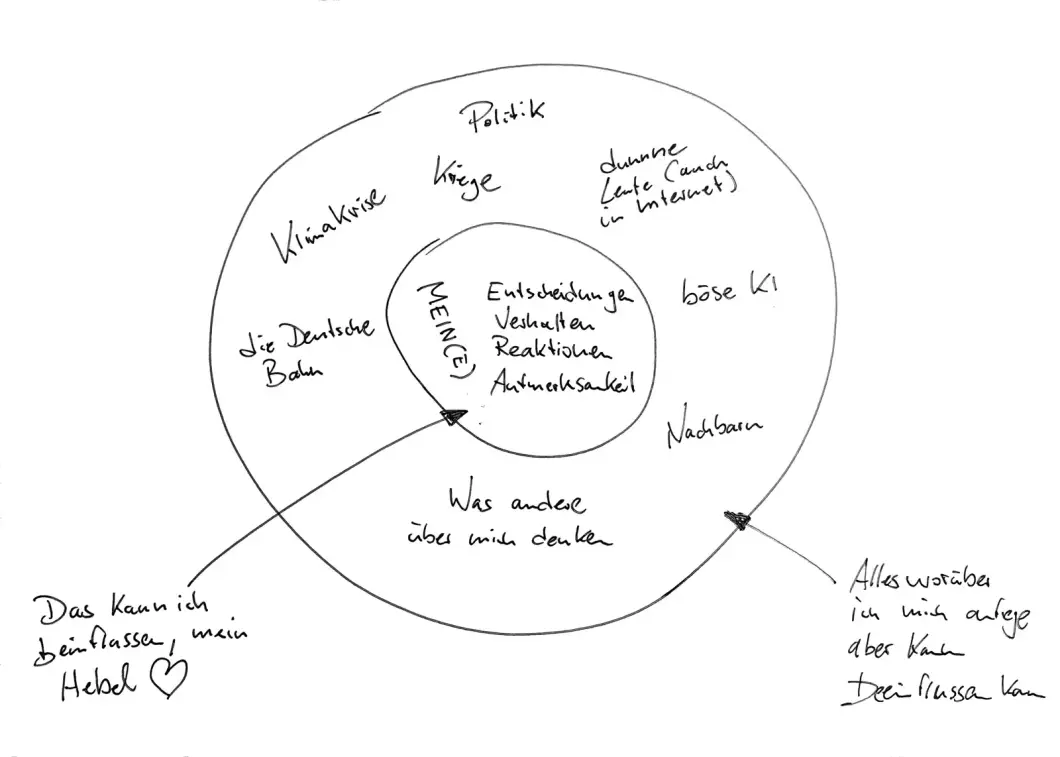 Politik
Kriege
dumme
Leute (auch
im Internet)
Klimakrise
böse KI
die Deutsche
Bahn
MEIN(E)
Entscheidungen
Verhalten
Reaktionen
Aufmerksamkeit
Nachbarn
Was andere
über mich denken
Das kann ich
beinflussen, mein
Hebel
Alles worüber
ich mich aufrege
aber kaum
beeinflussen kann